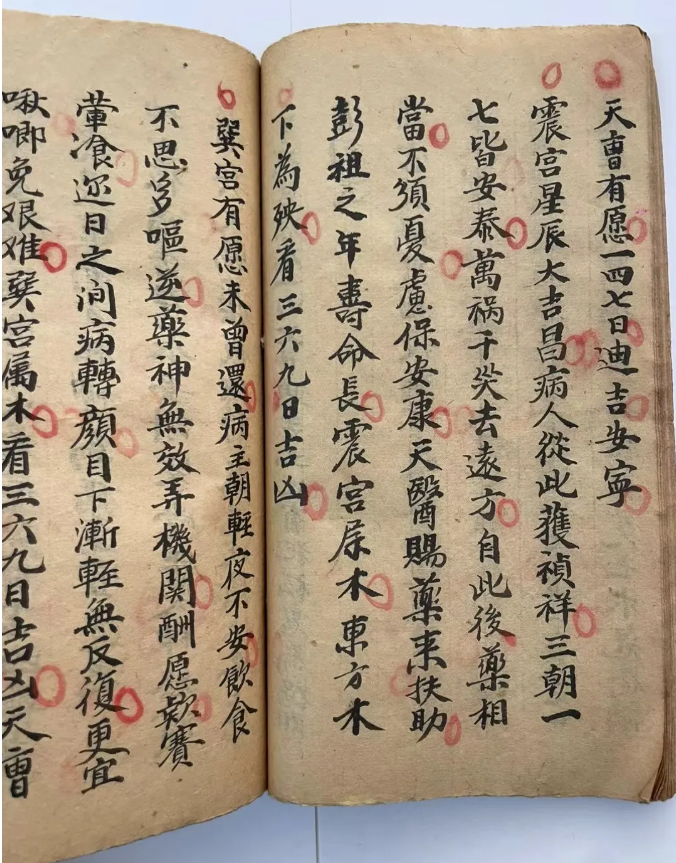 天曺有愿一四七日迪吉安寜
震宫星辰大吉昌病人從此獲禎祥三朝一
七皆安泰萬祸千災去遠方自此後藥相
當不須憂慮保安康天醫賜藥来扶助
彭祖之年壽命長震宮属木東方木
下為殃看三六九日吉凶
巽宫有愿未曾還病主朝輕夜不安飲食
不思多嘔逆藥神無效弄機関酬愿欵賽
葷飡迩日之间病轉顔目下漸輕無反復更宜
啾唧免艰难巽宫属木看三六九日吉凶天曺